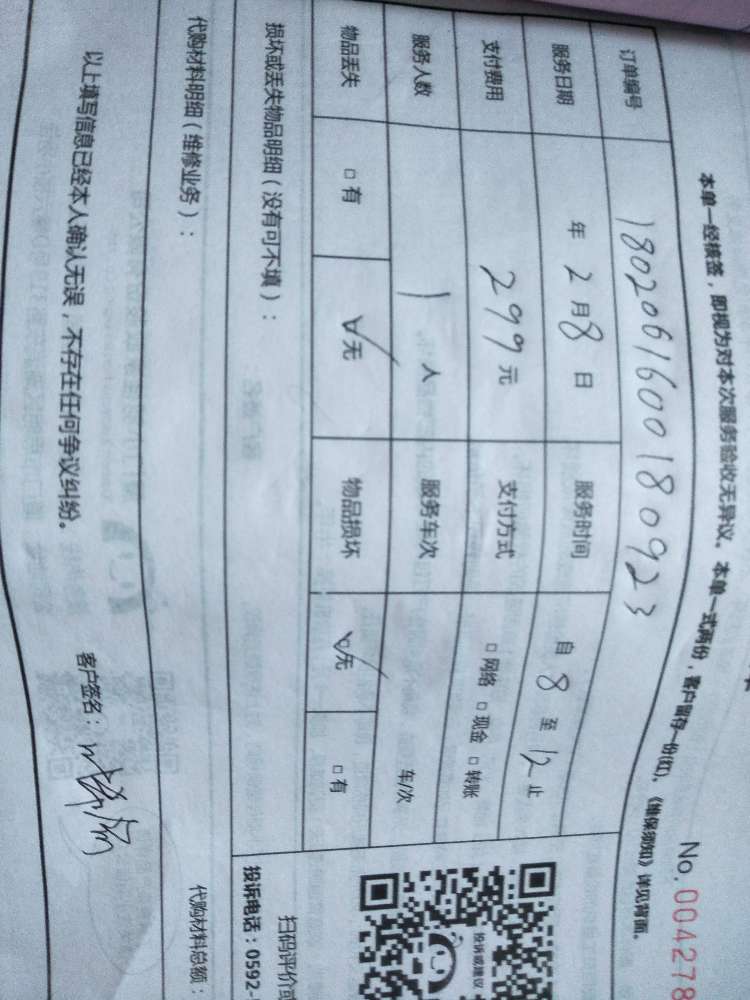 No. 004278
本单一经核签，即视为对本次服务验收无异议。本单一式两份，客户留存一份(红)，《维保须知》详见背面。
订单编号 180206160018 0923
服务日期 年 2 月 8 日 服务时间 自 8 至 12 止
支付费用 299 元 支付方式 □网络 □现金 □转账
服务人数 1 人 服务车次 车/次
物品丢失 □有 ☑无 物品损坏 ☑无 □有
损坏或丢失物品明细（没有可不填）：
投诉或建议
扫码评价或
投诉电话：0592-
代购材料明细（维修业务）： 代购材料总额：
以上填写信息已经本人确认无误，不存在任何争议纠纷。 客户签名：